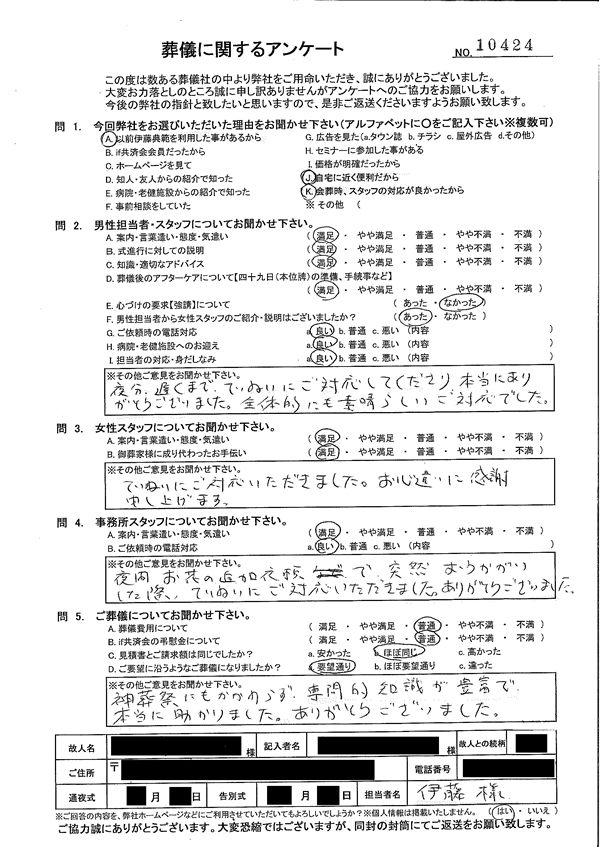 葬儀に関するアンケート
NO. 10424
この度は数ある葬儀社の中より弊社をご用命いただき、誠にありがとうございました。
大変お力落としのところ誠に申し訳ありませんがアンケートへのご協力をお願いします。
今後の弊社の指針と致したいと思いますので、是非ご返送くださいますようお願い致します。
問 1. 今回弊社をお選びいただいた理由をお聞かせ下さい(アルファベットに〇をご記入下さい※複数可)
A. 以前伊藤典範を利用した事があるから
G. 広告を見た(a.タウン誌 b.チラシ c.屋外広告 d.その他)
B. if共済会会員だったから
H. セミナーに参加した事がある
C. ホームページを見て
I. 価格が明確だったから
D. 知人・友人からの紹介で知った
J. 自宅に近く便利だから
E. 病院・老健施設からの紹介で知った
K. 会葬時、スタッフの対応が良かったから
F. 事前相談をしていた
※ その他 (
問 2. 男性担当者・スタッフについてお聞かせ下さい。
A. 案内・言葉遣い・態度・気遣い ( 満足 ・ やや満足 ・ 普通 ・ やや不満 ・ 不満 )
B. 式進行に対しての説明 ( 満足 ・ やや満足 ・ 普通 ・ やや不満 ・ 不満 )
C. 知識・適切なアドバイス ( 満足 ・ やや満足 ・ 普通 ・ やや不満 ・ 不満 )
D. 葬儀後のアフターケアについて【四十九日(本位牌)の準備、手続事など】
( 満足 ・ やや満足 ・ 普通 ・ やや不満 ・ 不満 )
E. 心づけの要求【強請】について ( あった ・ なかった )
F. 男性担当者から女性スタッフのご紹介・説明はございましたか? ( あった ・ なかった )
G. ご依頼時の電話対応 a. 良い b. 普通 c. 悪い (内容 )
H. 病院・老健施設へのお迎え a. 良い b. 普通 c. 悪い (内容 )
I. 担当者の対応・身だしなみ a. 良い b. 普通 c. 悪い (内容 )
※その他ご意見をお聞かせ下さい。
夜分、遅くまで、ていねいにご対応してくださり、本当にあり
がとうございました。全体的にも素晴らしいご対応でした。
問 3. 女性スタッフについてお聞かせ下さい。
A. 案内・言葉遣い・態度・気遣い ( 満足 ・ やや満足 ・ 普通 ・ やや不満 ・ 不満 )
B. 御葬家様に成り代わったお手伝い ( 満足 ・ やや満足 ・ 普通 ・ やや不満 ・ 不満 )
※その他ご意見をお聞かせ下さい。
ていねいにご対応いただきました。お心遣いに感謝
申し上げます。
問 4. 事務所スタッフについてお聞かせ下さい。
A. 案内・言葉遣い・態度・気遣い ( 満足 ・ やや満足 ・ 普通 ・ やや不満 ・ 不満 )
B. ご依頼時の電話対応 a. 良い b. 普通 c. 悪い (内容 )
※その他ご意見をお聞かせ下さい。
夜間 お花の追加依頼 で、突然 おうかがい
した際、ていねいにご対応いただきました。ありがとうございました。
問 5. ご葬儀についてお聞かせ下さい。
A. 葬儀費用について ( 満足 ・ やや満足 ・ 普通 ・ やや不満 ・ 不満 )
B. if共済会の弔慰金について ( 満足 ・ やや満足 ・ 普通 ・ やや不満 ・ 不満 )
C. 見積書とご請求額は同じでしたか? a. 安かった b. ほぼ同じ c. 高かった
D. ご要望に沿うようなご葬儀になりましたか? a. 要望通り b. ほぼ要望通り c. 違った
※その他ご意見をお聞かせ下さい。
神葬祭にもかかわらず、専門的知識が豊富で、
本当に助かりました。ありがとうございました。
故人名 様 記入者名 様 故人との続柄
ご住所 〒 電話番号
通夜式 月 日 告別式 月 日 担当者名 伊藤 様
※ご回答の内容を、弊社ホームページなどにご利用させていただいてもよろしいでしょうか?※個人情報は掲載いたしません。 ( はい ・ いいえ )
ご協力誠にありがとうございます。大変恐縮ではございますが、同封の封筒にてご返送をお願い致します。